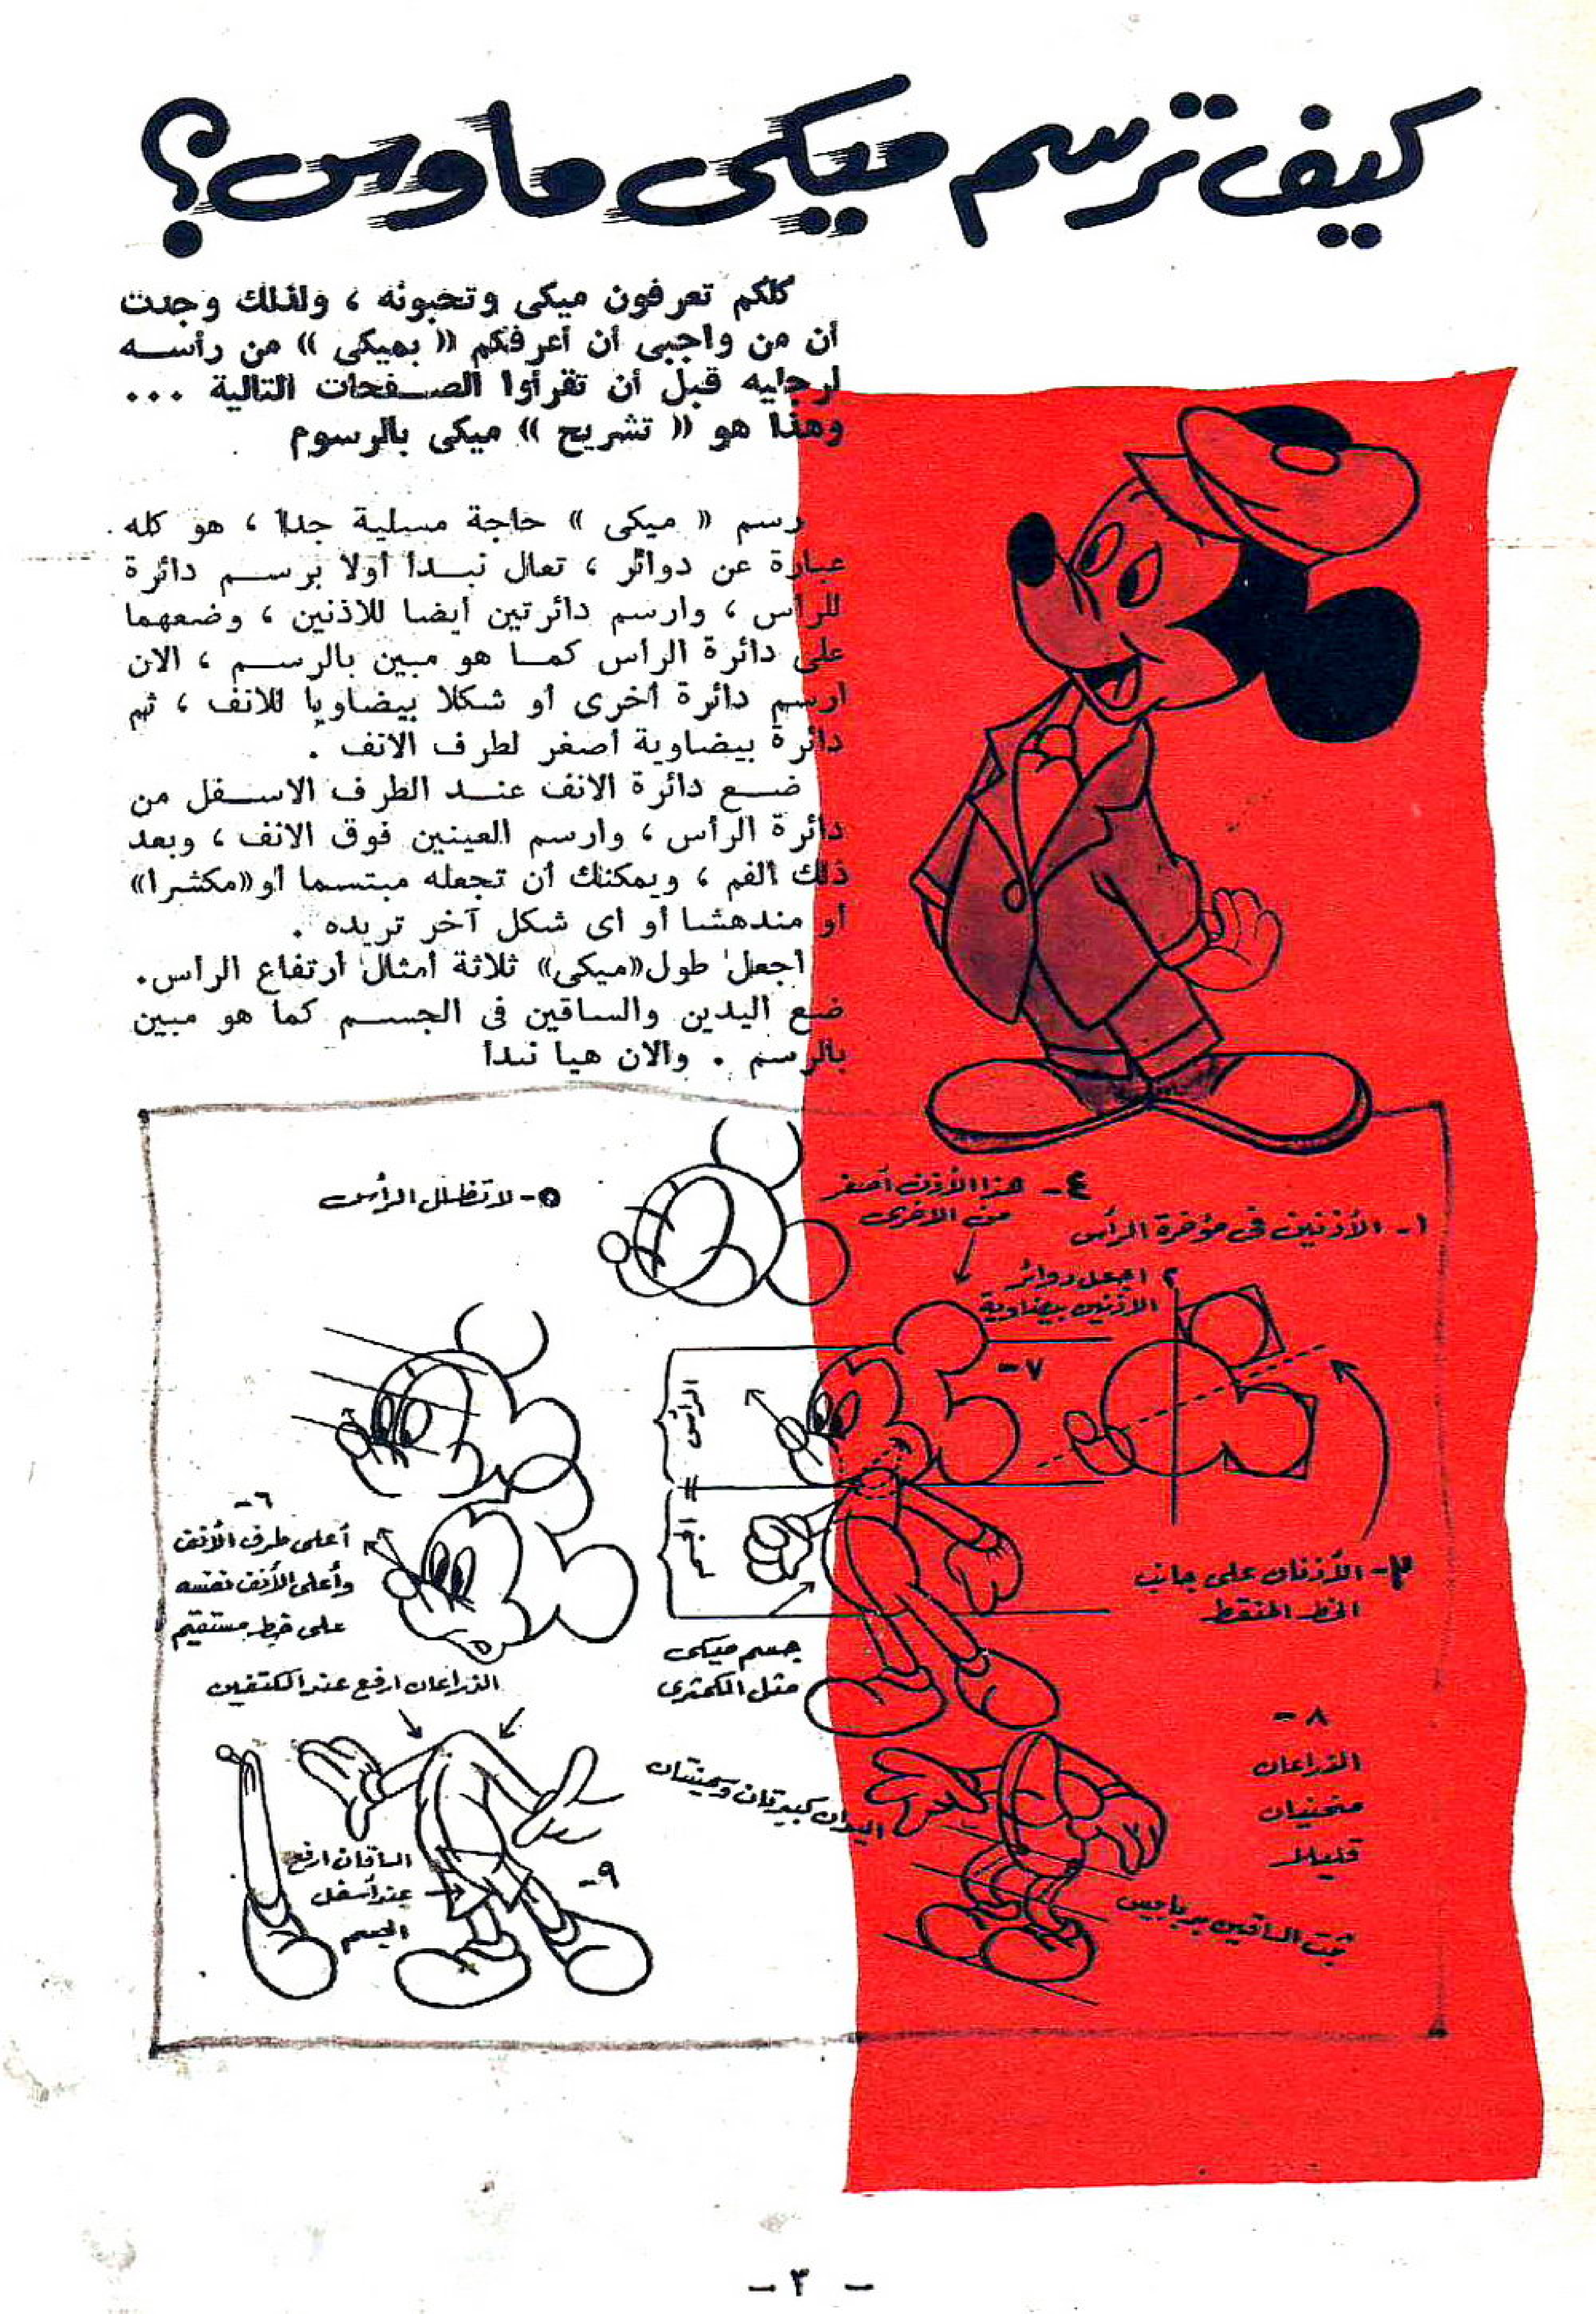 كيف ترسم ميكى ماوس؟
كلكم تعرفون ميكى وتحبونه ، ولذلك وجدت
أن من واجبى أن أعرفكم « بميكى » من رأســه
لرجليه قبل أن تقرأوا الصــفحات التالية ...
وهذا هو « تشريح » ميكى بالرسوم
رسم « ميكى » حاجة مسلية جدا ، هو كله
عبارة عن دوائر ، تعال نبــدأ أولا برســم دائرة
للرأس ، وارسم دائرتين أيضا للاذنين ، وضعهما
على دائرة الرأس كمــا هو مبين بالرســم ، الان
ارسم دائرة أخرى أو شكلا بيضاويا للانف ، ثم
دائرة بيضاوية أصغر لطرف الانف .
ضــع دائرة الانف عنــد الطرف الاســفل من
دائرة الرأس ، وارسم العينين فوق الانف ، وبعد
ذلك الفم ، ويمكنك أن تجعله مبتسما أو«مكشرا»
أو مندهشا أو أى شكل آخر تريده .
اجعل طول«ميكى» ثلاثة أمثال ارتفاع الرأس.
ضع اليدين والساقين فى الجســم كما هو مبين
بالرسم . والان هيا نبدأ
١- الأذنين فى مؤخرة الرأس
٢ اجعل دوائر
الأذنين بيضاوية
٣- الأذنان على جانب
الخط المنقط
٤- هذا الأذن أصغر
من الاخرى
٥- لا تظلل الرأس
٦-
أعلى طرف الأنف
وأعلى الأنف نفسه
على خط مستقيم
٧-
الرأس
الجسم
جسم ميكى
مثل الكمثرى
٨-
الذراعان
منحنيان
قليلا
اليدان كبيرتان وسمينتان
الذراعان ارفع عند الكتفين
٩-
الساقان ارفع
عند أسفل
الجسم
- ٣ -